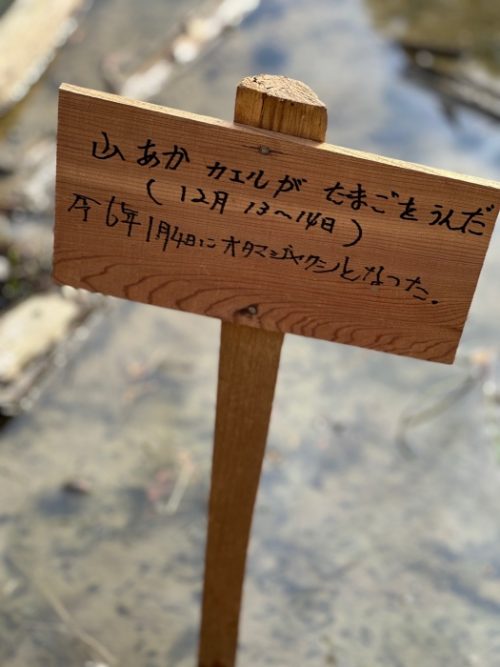 山あかカエルがたまごをうんだ
(12月13~14日)
令6年1月4日にオタマジャクシとなった。